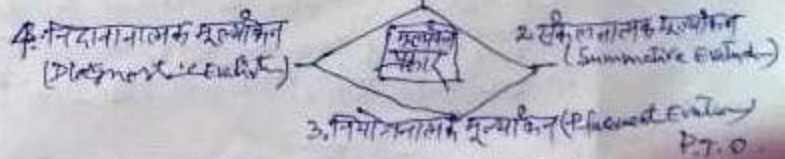 4. निदानात्मक मूल्यांकन
(Diagnostic Evalut)
मूल्यांकन
प्रकार
2. संकलनात्मक मूल्यांकन
(Summative Evaluation)
3. नियोजनात्मक मूल्यांकन (Placement Evaluation)
P.T.O.